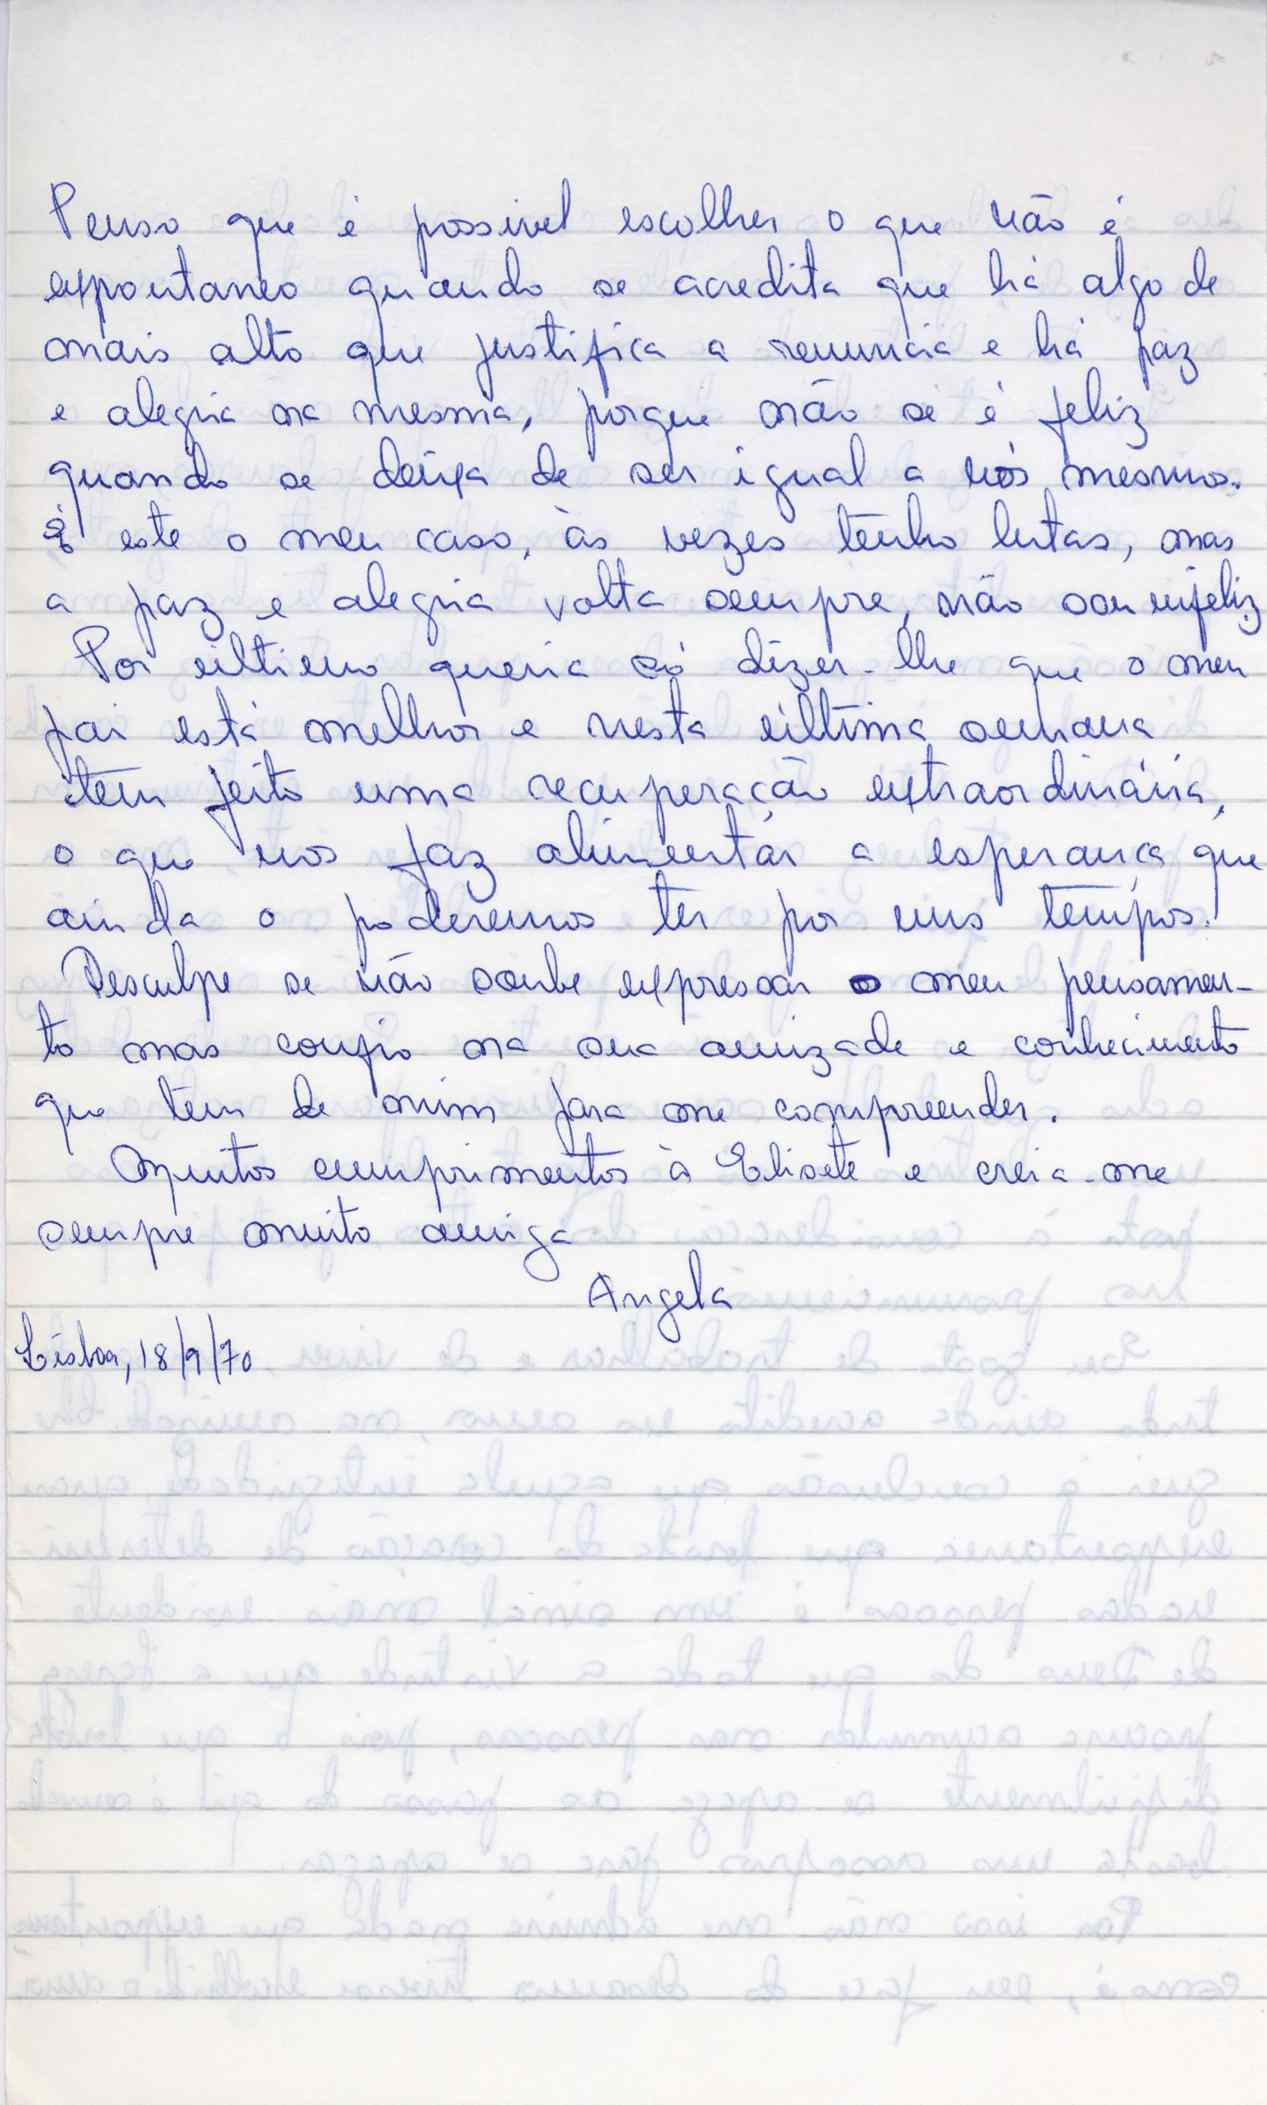 Penso que é possivel escolher o que não é
expontaneo quando se acredita que há algo de
mais alto que justifica a renuncia e há paz
e alegria na mesma, porque não se é feliz
quando se deixa de ser igual a nós mesmos.
É este o meu caso, às vezes tenho lutas, mas
a paz e alegria volta sempre, não sou infeliz
Por último queria só dizer-lhe que o meu
pai está melhor e nesta última semana
tem feito uma recuperação extraordinária,
o que nos faz alimentar a esperança que
ainda o poderemos ter por uns tempos.
Desculpe se não soube expressar o meu pensamen-
to mas confio na sua amizade e conhecimento
que tem de mim para me compreender.
Muitos cumprimentos à Elisete e creia-me
sempre muito amiga
Angela
Lisboa, 18/9/70